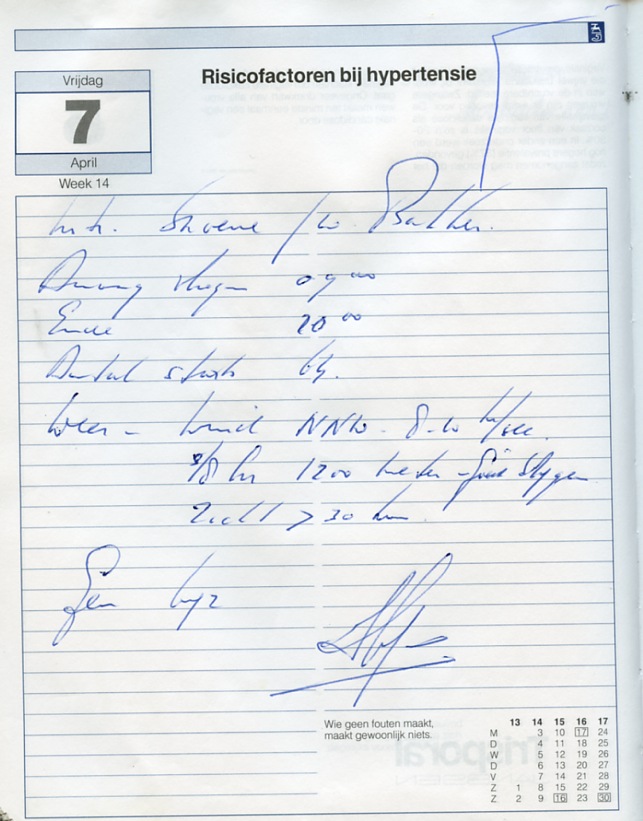 Risicofactoren bij hypertensie
Vrijdag
7
April
Week 14
Instr. / Bakker.
Aanvang vliegen 09 00
Einde 20 00
Aantal starts 64.
Weer - wind NNW - 8-10 m/sec.
3/8 Cu 1200 meter - Goed Stijgen
Zicht > 30 km.
Geen bijz
Wie geen fouten maakt,
maakt gewoonlijk niets.
13 14 15 16 17
M 3 10 17 24
D 4 11 18 25
W 5 12 19 26
D 6 13 20 27
V 7 14 21 28
Z 1 8 15 22 29
Z 2 9 16 23 30